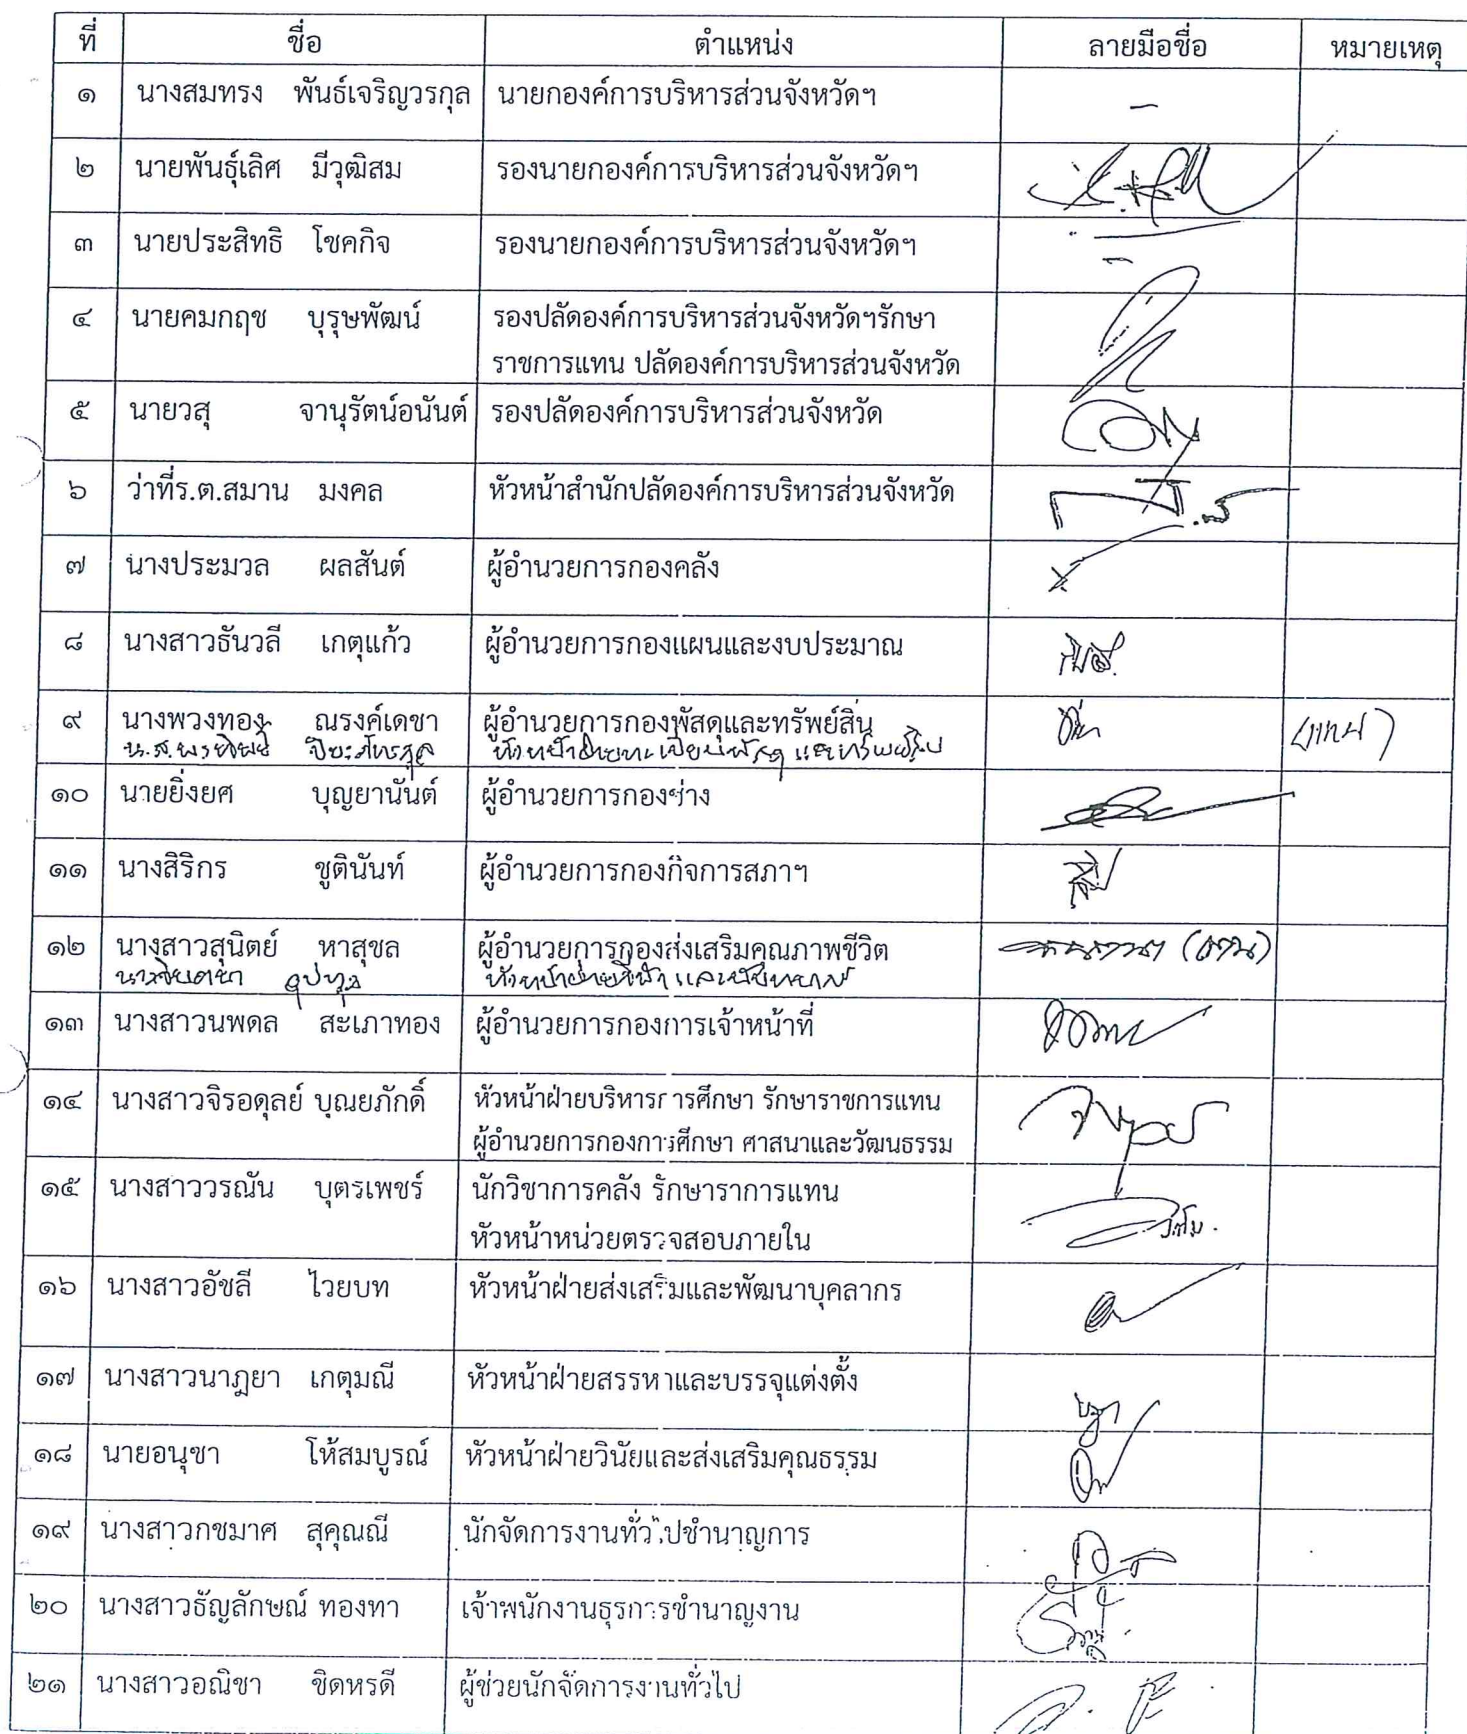 ที่ ชื่อ ตำแหน่ง ลายมือชื่อ หมายเหตุ
๑ นางสมทรง พันธ์เจริญวรกุล นายกองค์การบริหารส่วนจังหวัดฯ –
๒ นายพันธุ์เลิศ มีวุฒิสม รองนายกองค์การบริหารส่วนจังหวัดฯ
๓ นายประสิทธิ โชคกิจ รองนายกองค์การบริหารส่วนจังหวัดฯ –
๔ นายคมกฤช บุรุษพัฒน์ รองปลัดองค์การบริหารส่วนจังหวัดฯรักษา
ราชการแทน ปลัดองค์การบริหารส่วนจังหวัด
๕ นายวสุ จานุรัตน์อนันต์ รองปลัดองค์การบริหารส่วนจังหวัด
๖ ว่าที่ร.ต.สมาน มงคล หัวหน้าสำนักปลัดองค์การบริหารส่วนจังหวัด
๗ นางประมวล ผลสันต์ ผู้อำนวยการกองคลัง
๘ นางสาวธันวลี เกตุแก้ว ผู้อำนวยการกองแผนและงบประมาณ
๙ นางพวงทอง ณรงค์เดชา ผู้อำนวยการกองพัสดุและทรัพย์สิน (แทน)
น.ส. หัวหน้าฝ่ายทะเบียนพัสดุและทรัพย์สิน
๑๐ นายยิ่งยศ บุญยานันต์ ผู้อำนวยการกองช่าง
๑๑ นางสิริกร ชูตินันท์ ผู้อำนวยการกองกิจการสภาฯ
๑๒ นางสาวสุนิตย์ หาสุชล ผู้อำนวยการกองส่งเสริมคุณภาพชีวิต (แทน)
หัวหน้าฝ่าย
๑๓ นางสาวนพดล สะเภาทอง ผู้อำนวยการกองการเจ้าหน้าที่
๑๔ นางสาวจิรอดุลย์ บุณยภักดิ์ หัวหน้าฝ่ายบริหารการศึกษา รักษาราชการแทน
ผู้อำนวยการกองการศึกษา ศาสนาและวัฒนธรรม
๑๕ นางสาววรณัน บุตรเพชร์ นักวิชาการคลัง รักษาราการแทน
หัวหน้าหน่วยตรวจสอบภายใน
๑๖ นางสาวอัชลี ไวยบท หัวหน้าฝ่ายส่งเสริมและพัฒนาบุคลากร
๑๗ นางสาวนาฎยา เกตุมณี หัวหน้าฝ่ายสรรหาและบรรจุแต่งตั้ง
๑๘ นายอนุชา โห้สมบูรณ์ หัวหน้าฝ่ายวินัยและส่งเสริมคุณธรรม
๑๙ นางสาวกชมาศ สุคุณณี นักจัดการงานทั่วไปชำนาญการ
๒๐ นางสาวธัญลักษณ์ ทองทา เจ้าพนักงานธุรการชำนาญงาน
๒๑ นางสาวอณิชา ชิดหรดี ผู้ช่วยนักจัดการงานทั่วไป